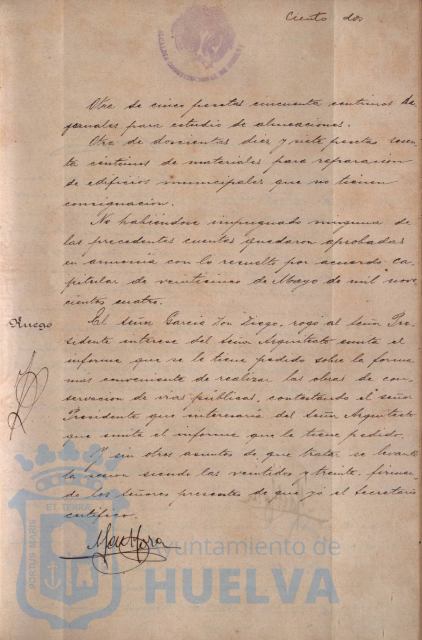 Ciento dos
Otra de cinco pesetas cincuenta centimos de
jornales para estudio de alineaciones.
Otra de doscientas diez y siete pesetas sesen-
ta centimos de materiales para reparacion
de edificios municipales que no tienen
consignacion.
No habiéndose impugnado ninguna de
las precedentes cuentas quedaron aprobadas
en armonia con lo resuelto por acuerdo ca-
pitular de veinticinco de Mayo de mil nove
cientos cuatro.
Ruego
El Señor Garcia Don Diego, rogó al Señor Pre-
sidente interese del Señor Arquitecto emita el
informe que se le tiene pedido sobre la forma
mas conveniente de realizar las obras de con-
servacion de vias públicas, contestando el señor
Presidente que interesaria del Señor Arquitecto
que emita el informe que le tiene pedido.
Y sin otros asuntos de que tratar se levantó
la sesion siendo las veintidos y treinta, firman-
do los señores presentes de que yo el Secretario
certifico.
PORTUS MARIS
ET TERRÆ
Ayuntamiento de
HUELVA